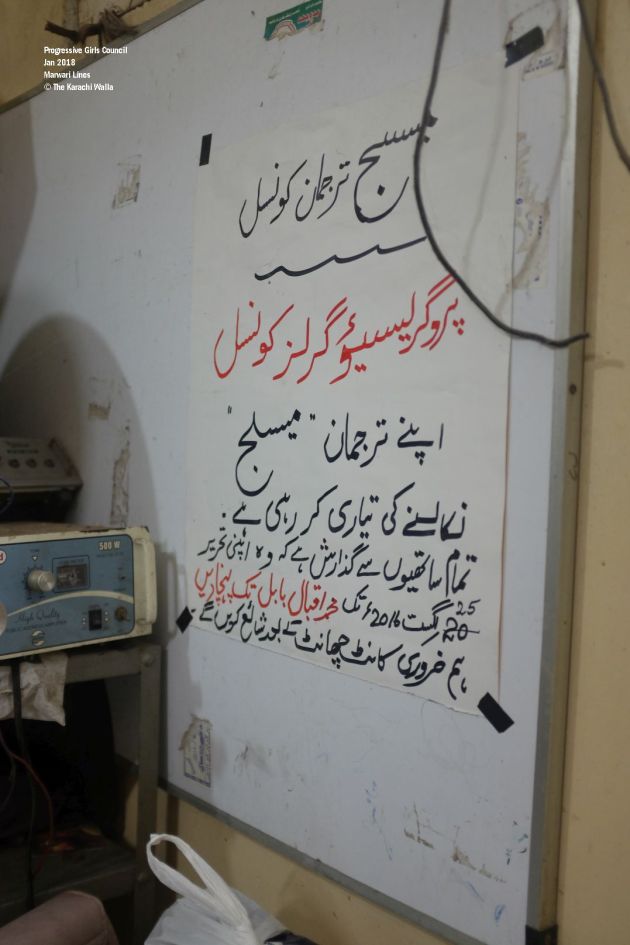 Progressive Girls Council
Jan 2018
Marwari Lines
© The Karachi Walla
میسلج ترجمان کونسل
پروگریسیؤ گرلز کونسل
اپنے ترجمان "میسلج"
نکالنے کی تیاری کر رہی ہے.
تمام ساتھیوں سے گذارش ہے کہ وہ اپنی تحریر
25 اگست 2016ء تک محمد اقبال بابل تک پہنچا دیں
ہم ضروری کانٹ چھانٹ کے بعد شائع کریں گے
500 W
High Quality